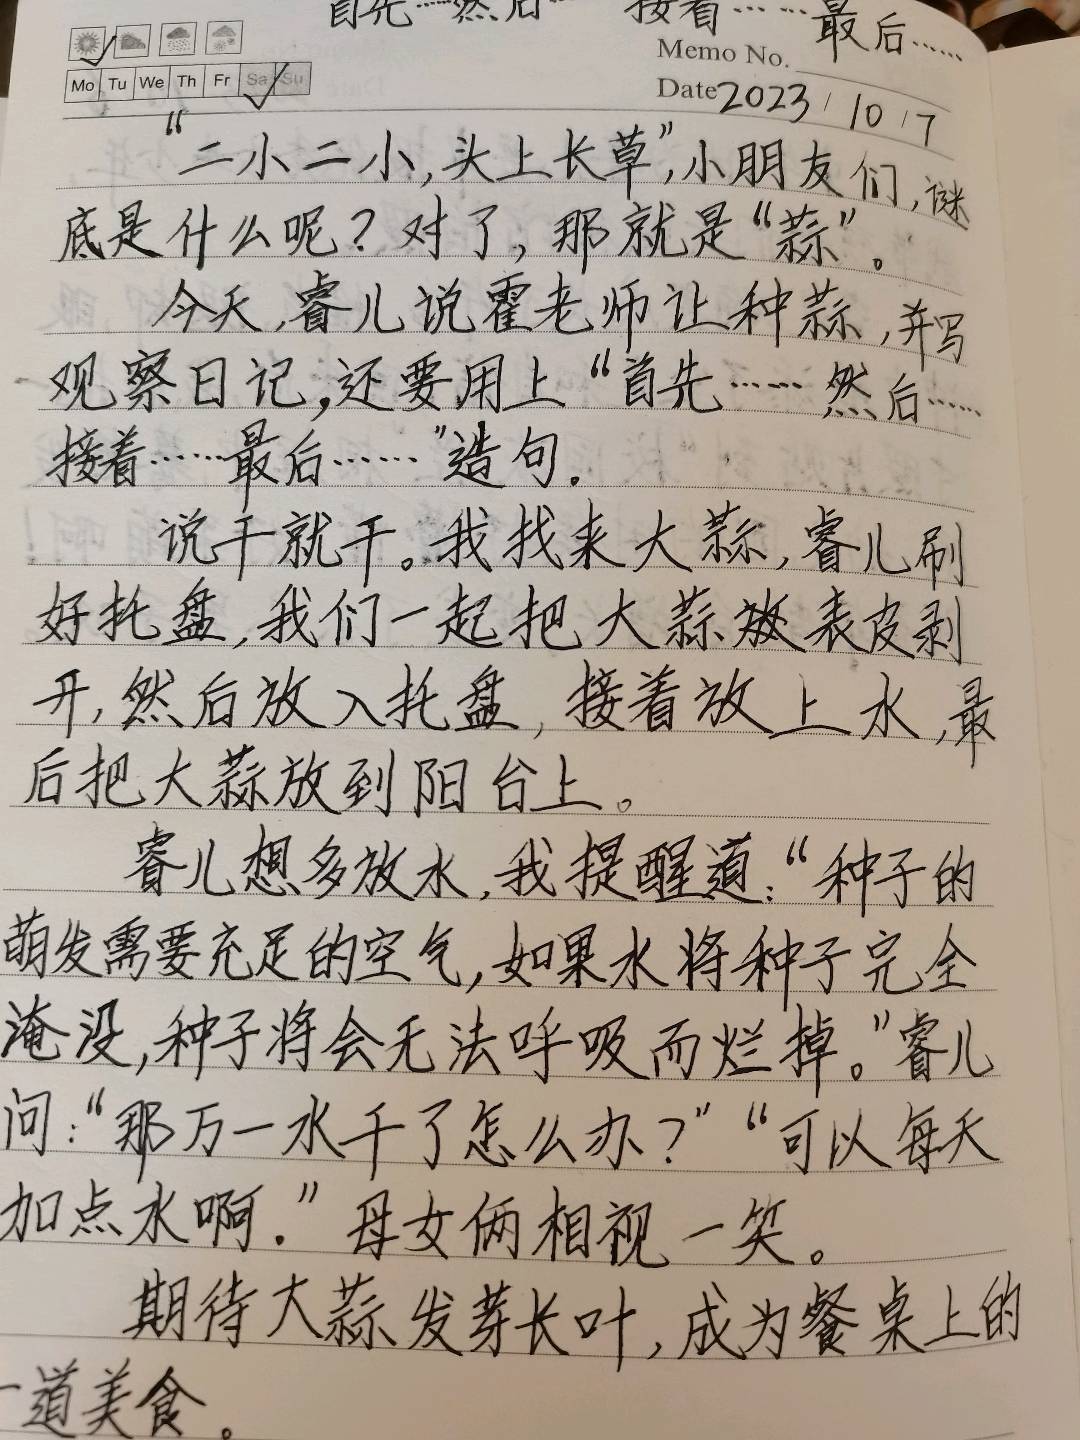 首先……然后…… 接着……最后……
Memo No.
Mo Tu We Th Fr Sa Su
Date 2023/10/7
“二小二小,头上长草”,小朋友们,谜
底是什么呢?对了,那就是“蒜”。
今天,睿儿说霍老师让种蒜,并写
观察日记,还要用上“首先……然后……
接着……最后……”造句.
说干就干。我找来大蒜,睿儿刷
好托盘,我们一起把大蒜表皮剥
开,然后放入托盘,接着放上水,最
后把大蒜放到阳台上。
睿儿想多放水,我提醒道:“种子的
萌发需要充足的空气,如果水将种子完全
淹没,种子将会无法呼吸而烂掉。”睿儿
问:“那万一水干了怎么办?”“可以每天
加点水啊.”母女俩相视一笑。
期待大蒜发芽长叶,成为餐桌上的
一道美食。